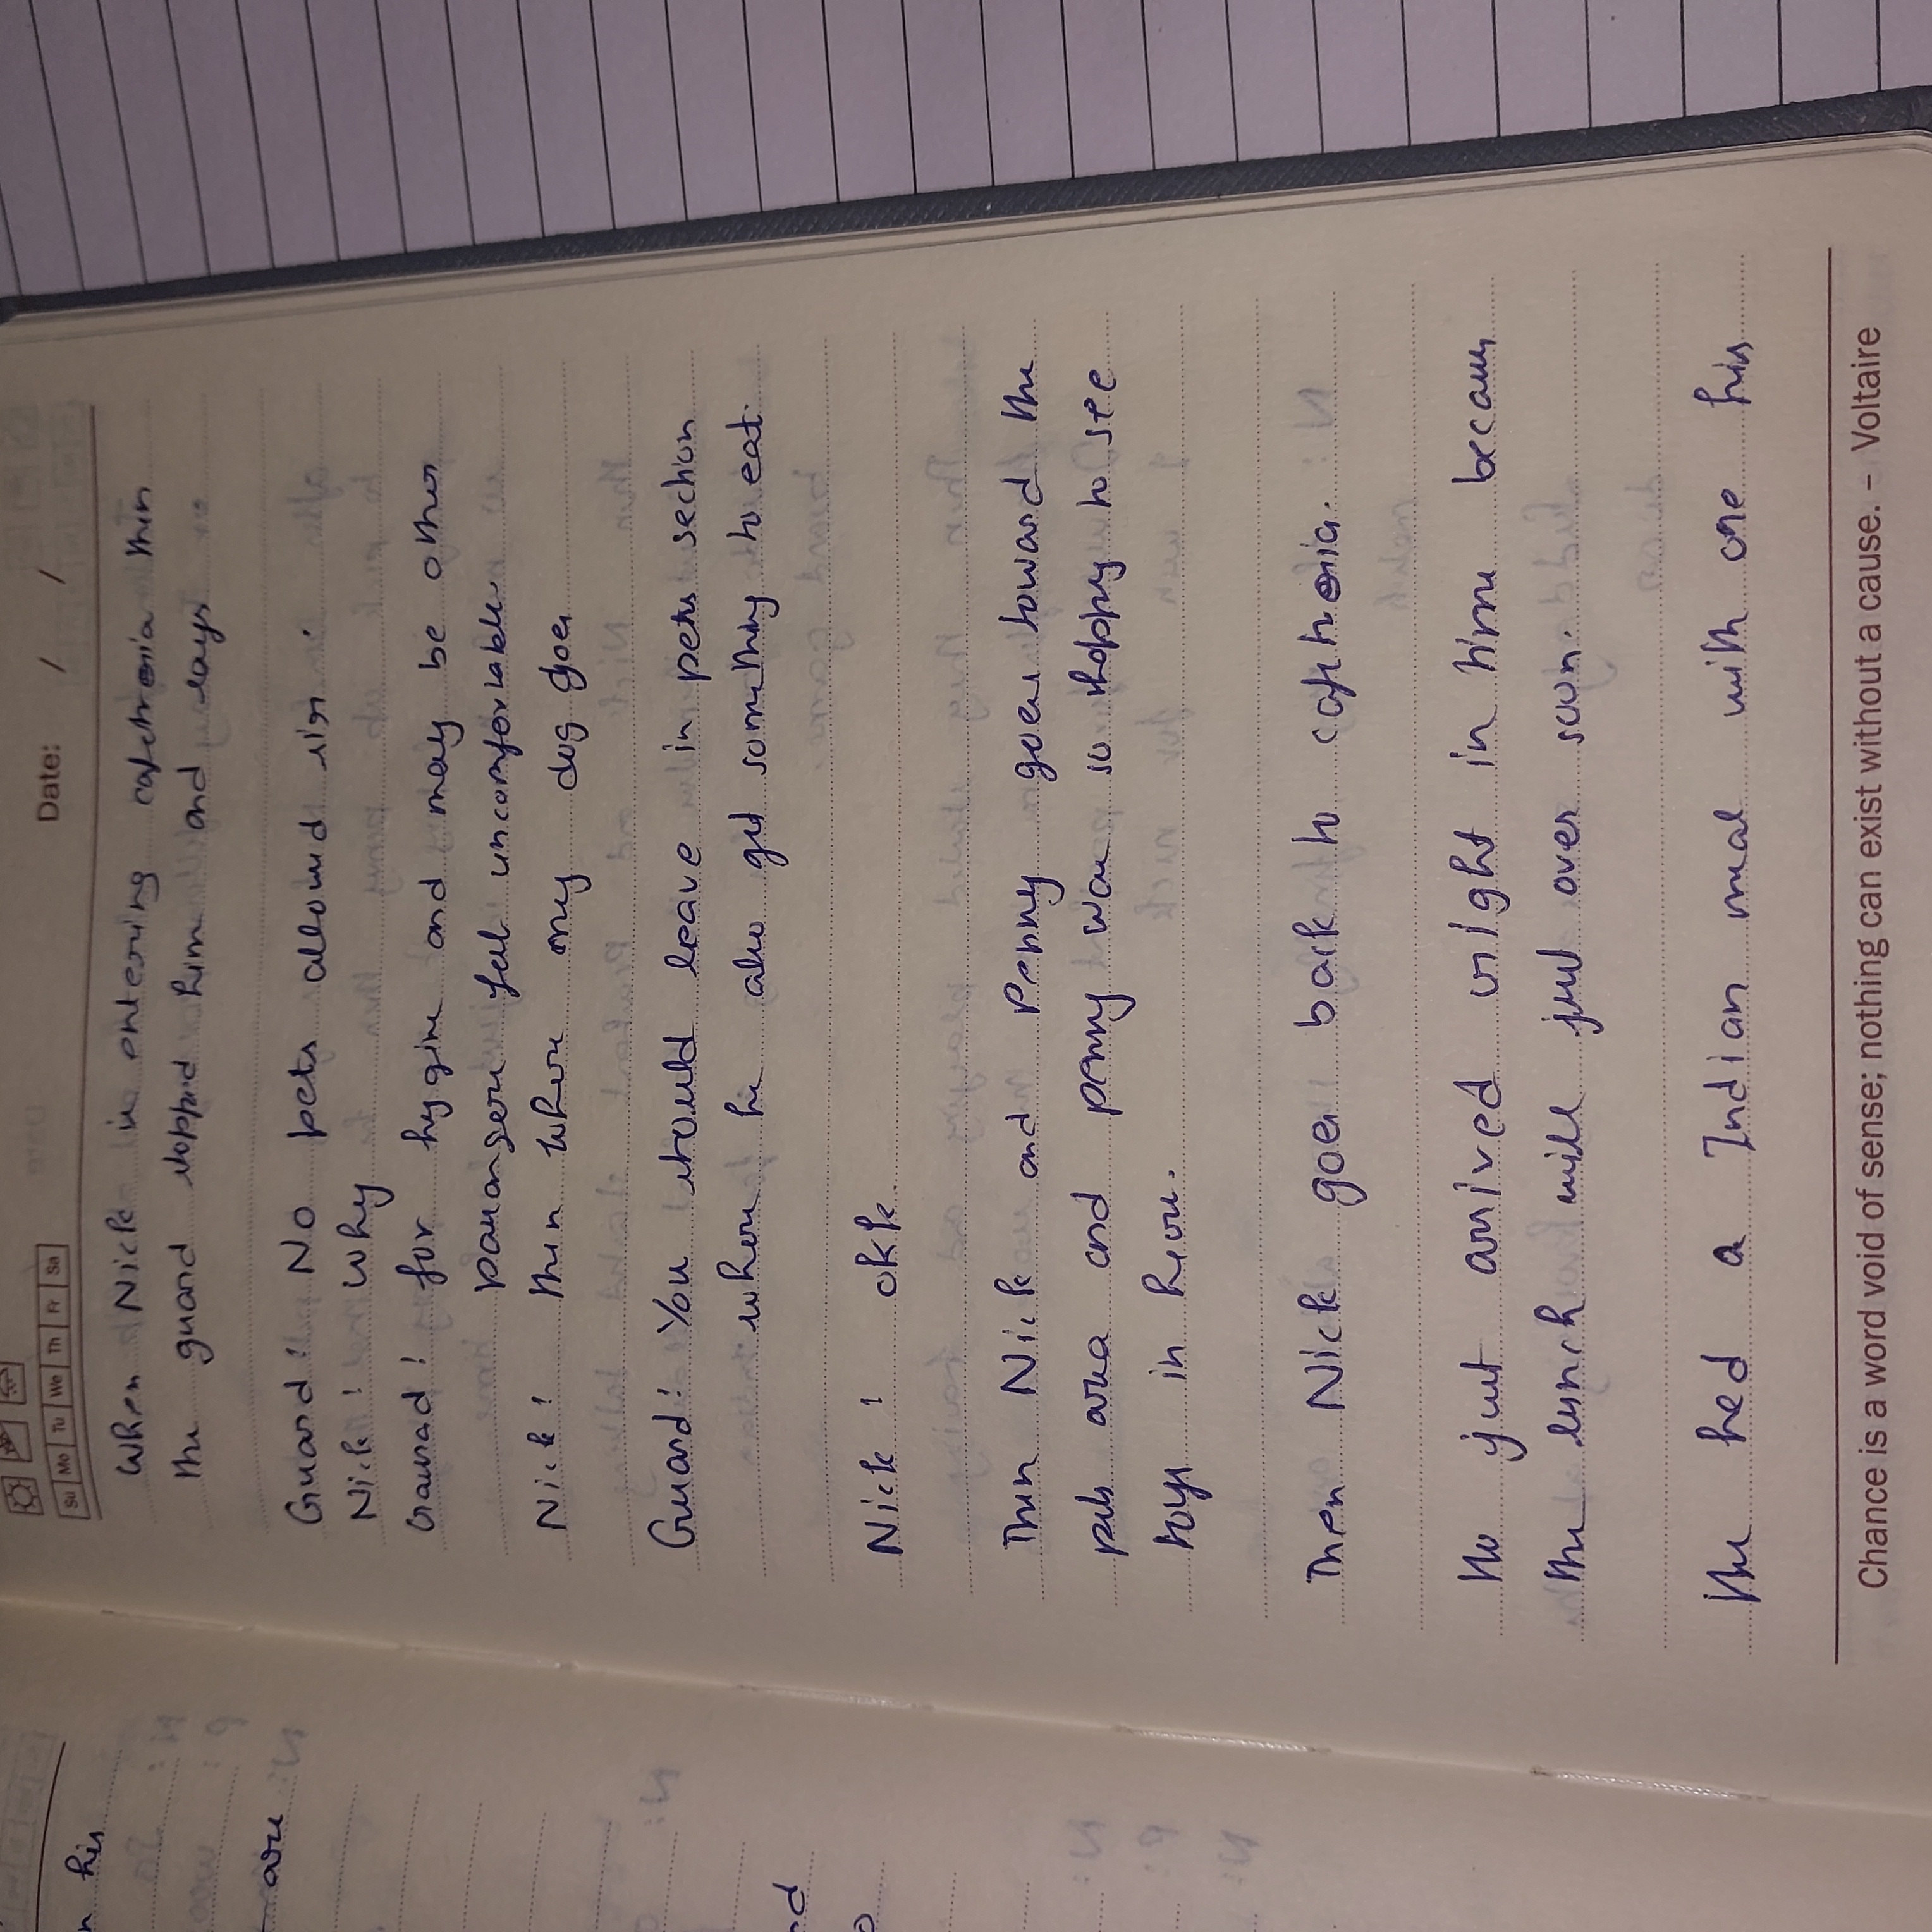 n his
are
nd
o
Su Mo Tu We Th Fr Sa
Date: / /
When Nick is entering cafetroria then
the guard stopped him and says
Guard: No pets allowed sir.
Nick: Why
Gaurad: for hygine and may be other
passangers feel uncomfortable.
Nick: then where my dog goes
Guard: You should leave in pets section
where he also get something to eat.
Nick: okk.
Then Nick and Penny goes toward the
pets area and penny was so happy to see
toys in
Then Nick goes back to cafetroria.
just arrived right in time because
the lunch will just over soon.
hed a Indian meal with one his
Chance is a word void of sense; nothing can exist without a cause. – Voltaire